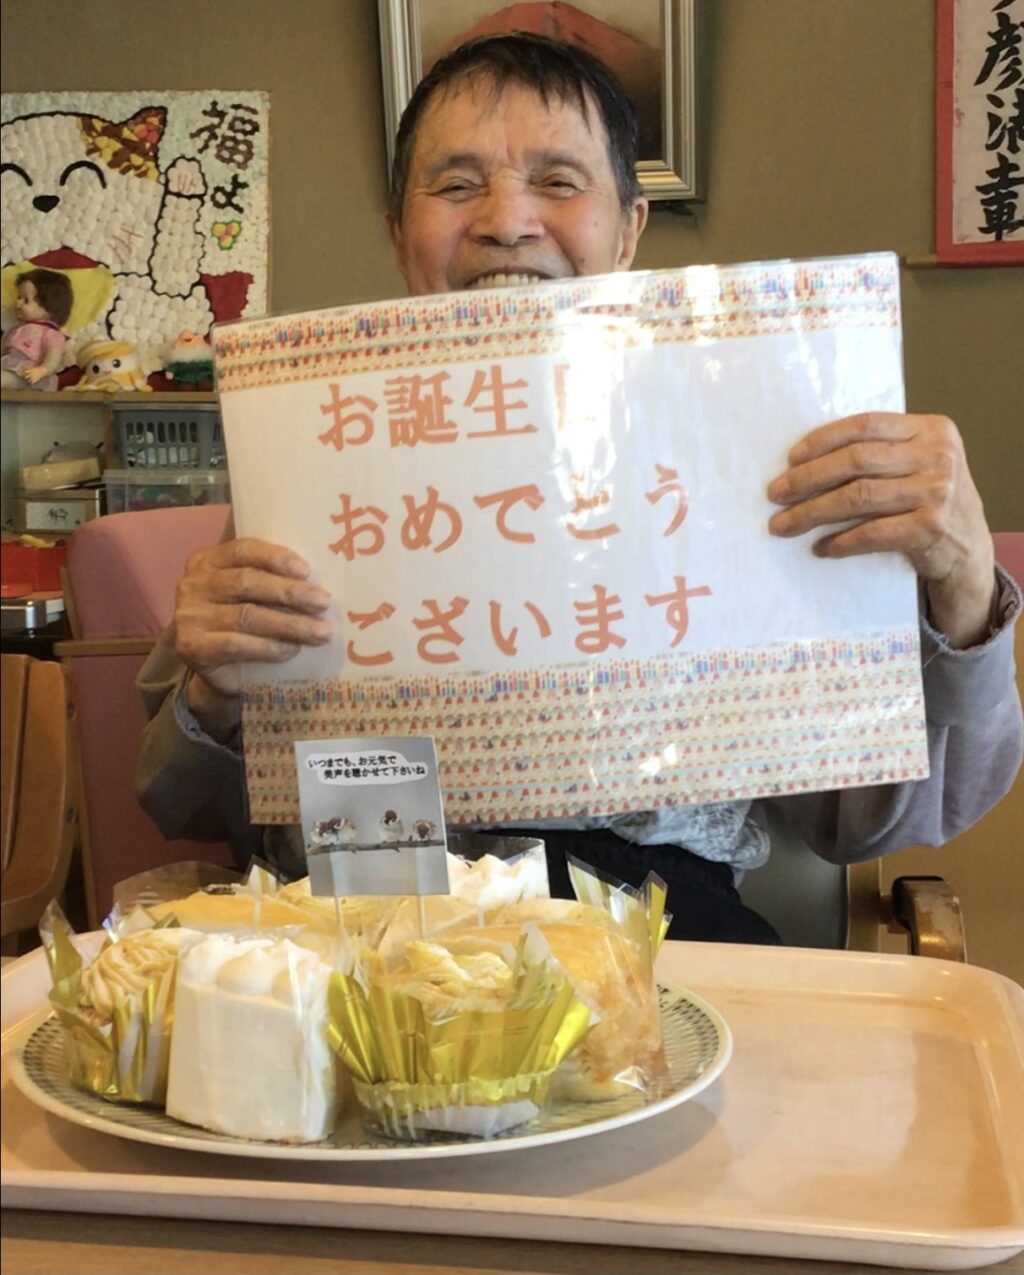 福よ
顔満車
お誕生日
おめでとう
ございます
いつまでも、お元気で
美声を聴かせて下さいね